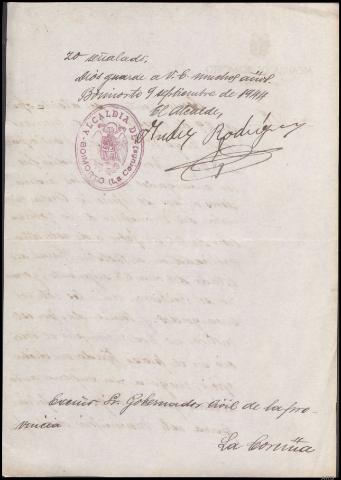 zo señalado.
Dios guarde a V.E. muchos años
Boimorto 9 septiembre de 1944
El Alcalde,
Andrés Rodríguez
ALCALDIA DE
BOIMORTO (La Coruña)
Excmo. Sr. Gobernador Civil de la pro-
vincia
La Coruña